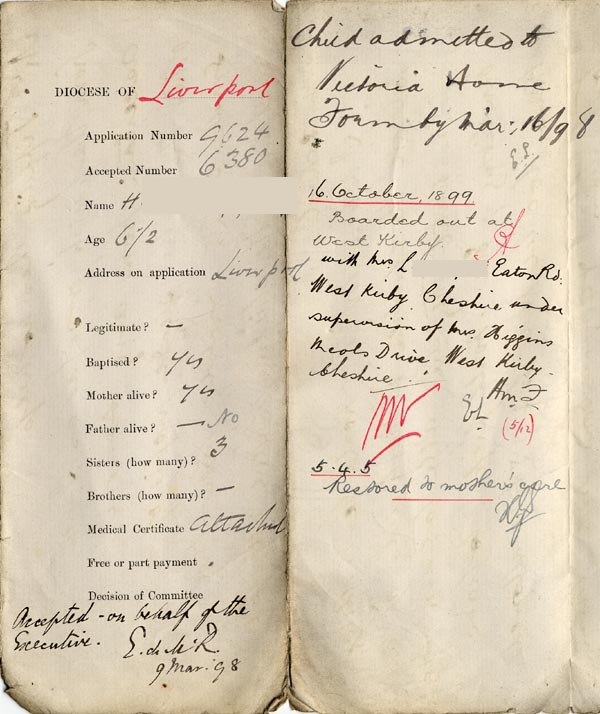 DIOCESE OF Liverpool
Application Number 9624
Accepted Number 6380
Name H.
Age 6 1/2
Address on application Liverpool
Legitimate? —
Baptised? yes
Mother alive? yes
Father alive? — No
Sisters (how many)? 3
Brothers (how many)? —
Medical Certificate attached
Free or part payment .
Decision of Committee
Accepted - on behalf of the
Executive. E. de M. R.
9 Mar: 98
Child admitted to
Victoria Home
Formby Mar: 16/98
16. October, 1899.
Boarded out at
West Kirby.
with Mrs. L Eaton Rd.
West Kirby Cheshire under
supervision of Mrs. Higgins
Meols Drive West Kirby.
Cheshire.
(5/12)
5.4.5
Restored to mother's care